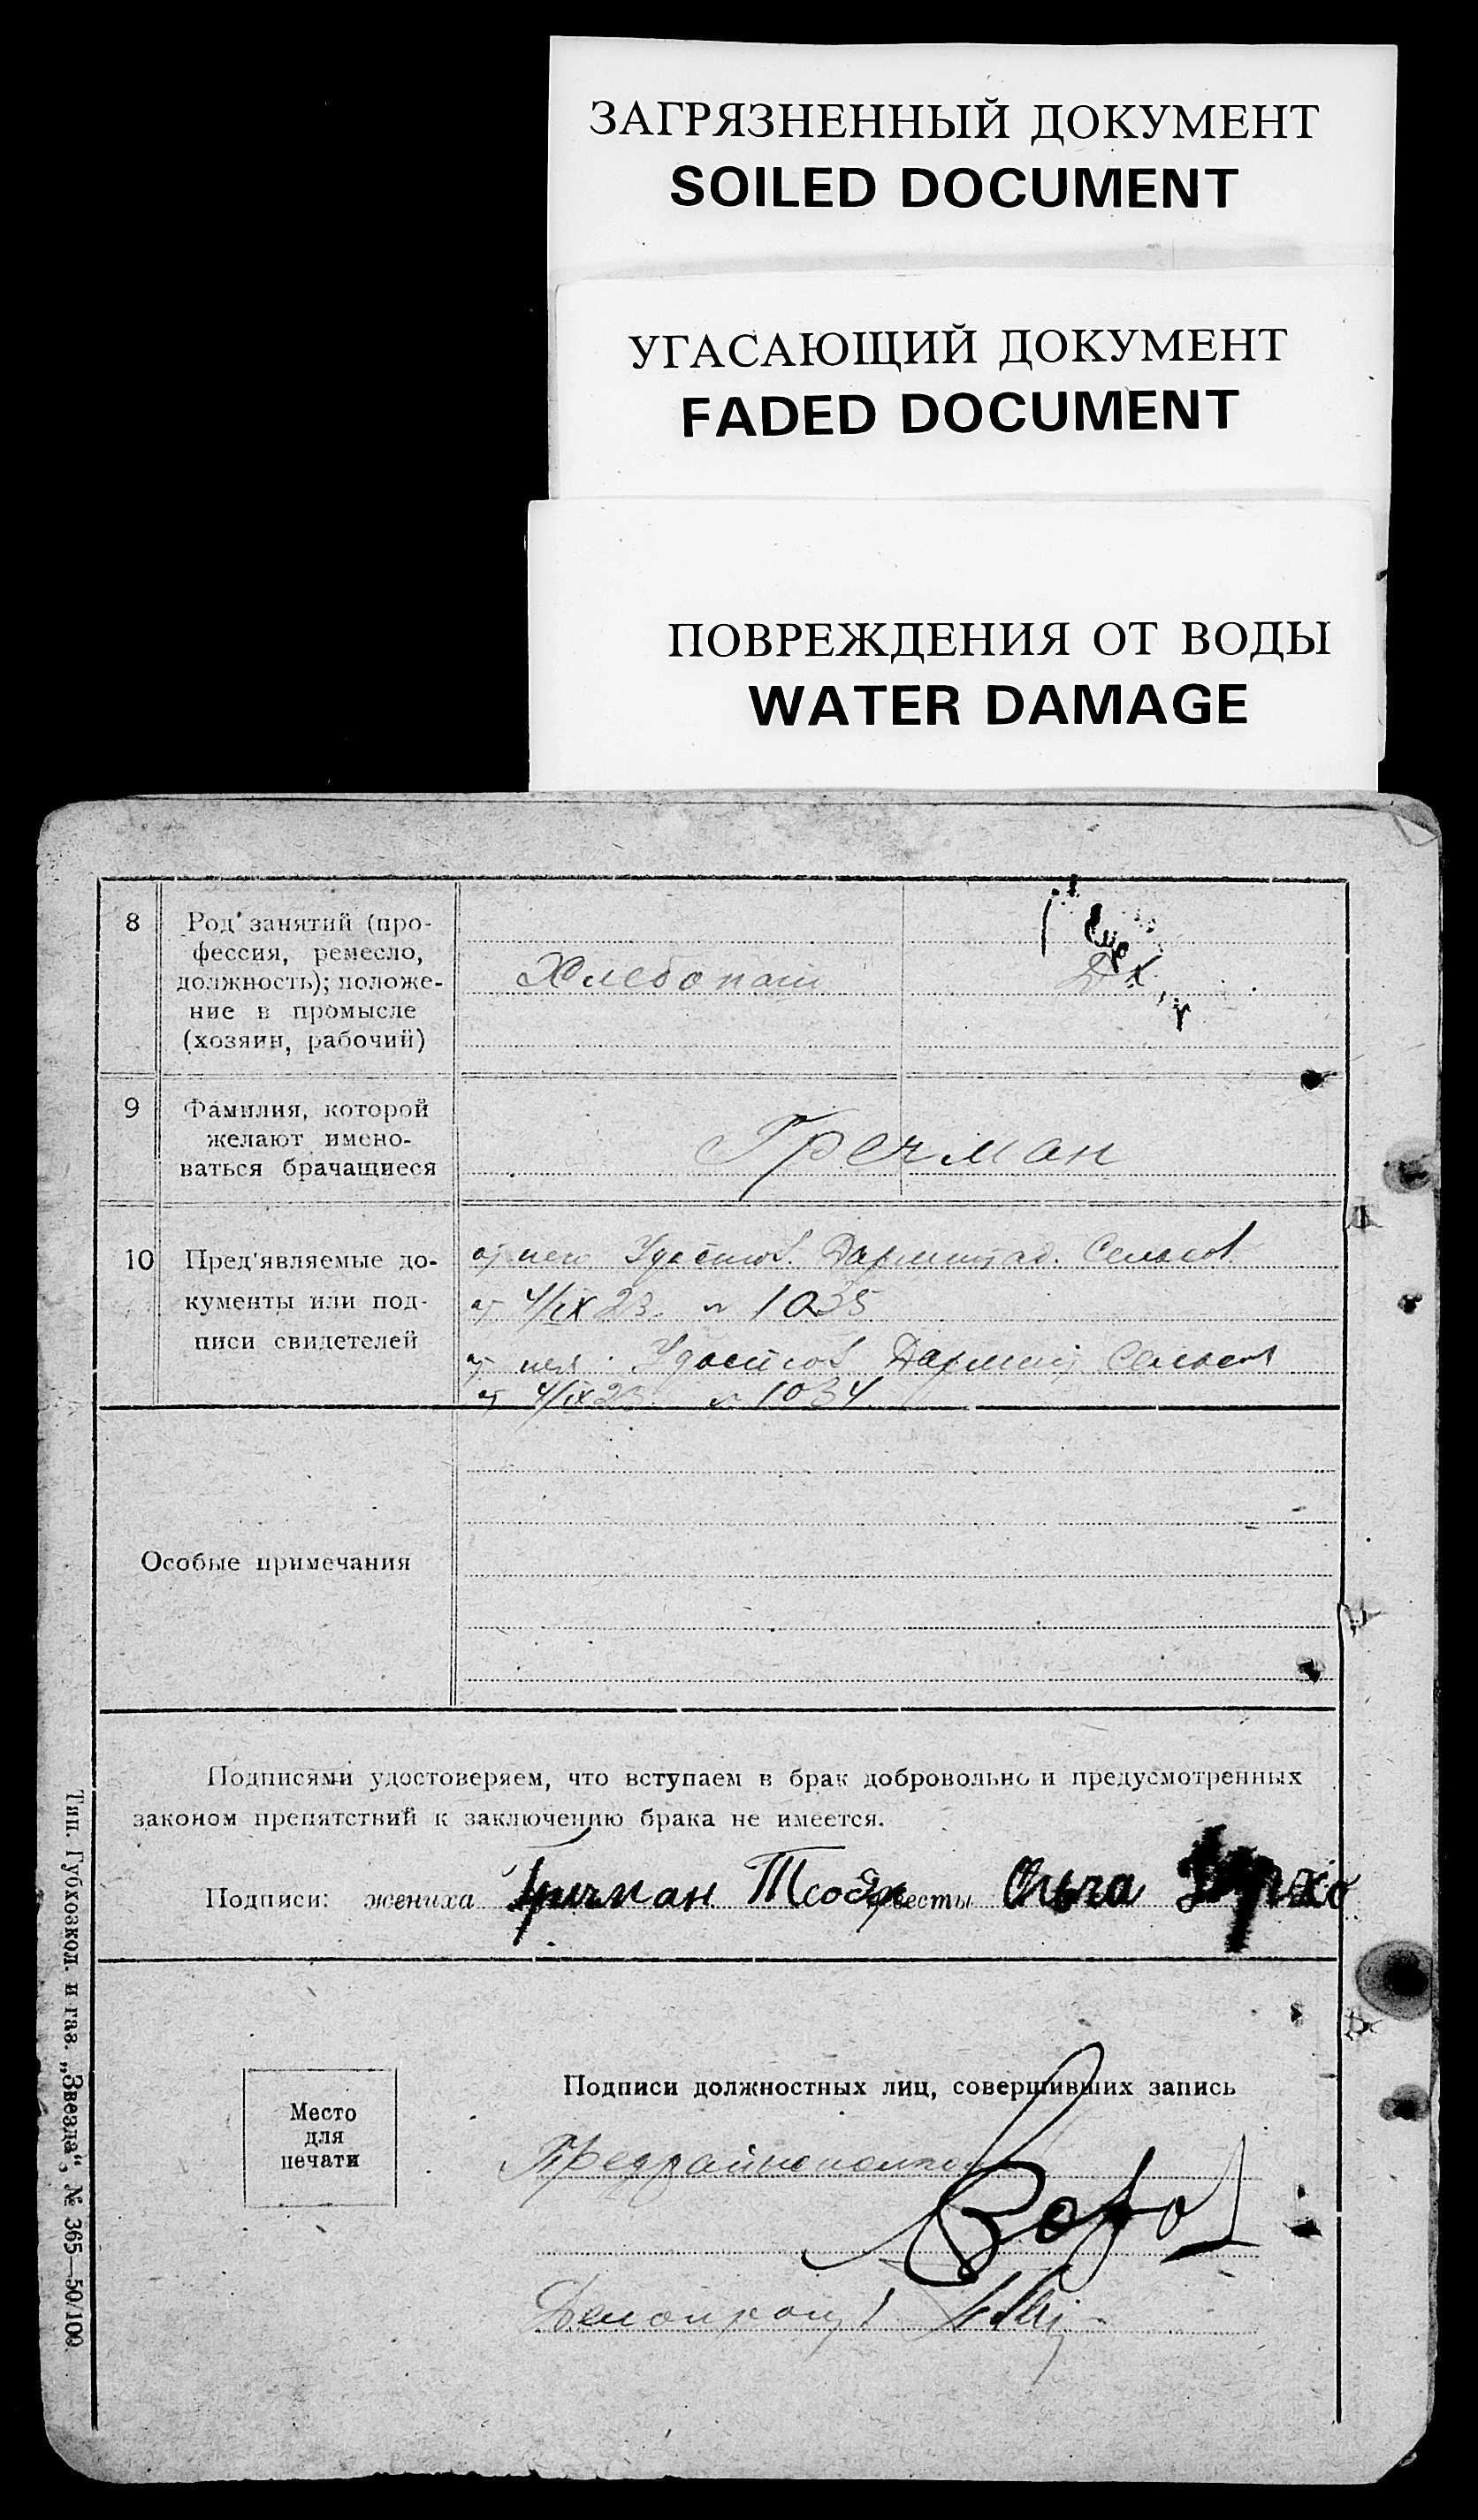 ЗАГРЯЗНЕННЫЙ ДОКУМЕНТ
SOILED DOCUMENT
УГАСАЮЩИЙ ДОКУМЕНТ
FADED DOCUMENT
ПОВРЕЖДЕНИЯ ОТ ВОДЫ
WATER DAMAGE
8
Род занятий (про-
фессия, ремесло,
должность); положе-
ние в промысле
(хозяин, рабочий)
Хлебопаш
9
Фамилия, которой
желают имено-
ваться брачащиеся
Гречман
10
Пред'являемые до-
кументы или под-
писи свидетелей
Удостов. Дармштад. Сельсов.
от 4/IX 23. № 1035
Удостов Дармшт Сельсов
от 4/IX 23. № 1034
Особые примечания
Подписями удостоверяем, что вступаем в брак добровольно и предусмотренных
законом препятствий к заключению брака не имеется.
Подписи: жениха Гричман невесты Ольга
Место
для
печати
Подписи должностных лиц, совершивших запись
Предрайисполком
Делопроизв
Тип. Губховкол. и газ. „Звезда“, № 365—50/100